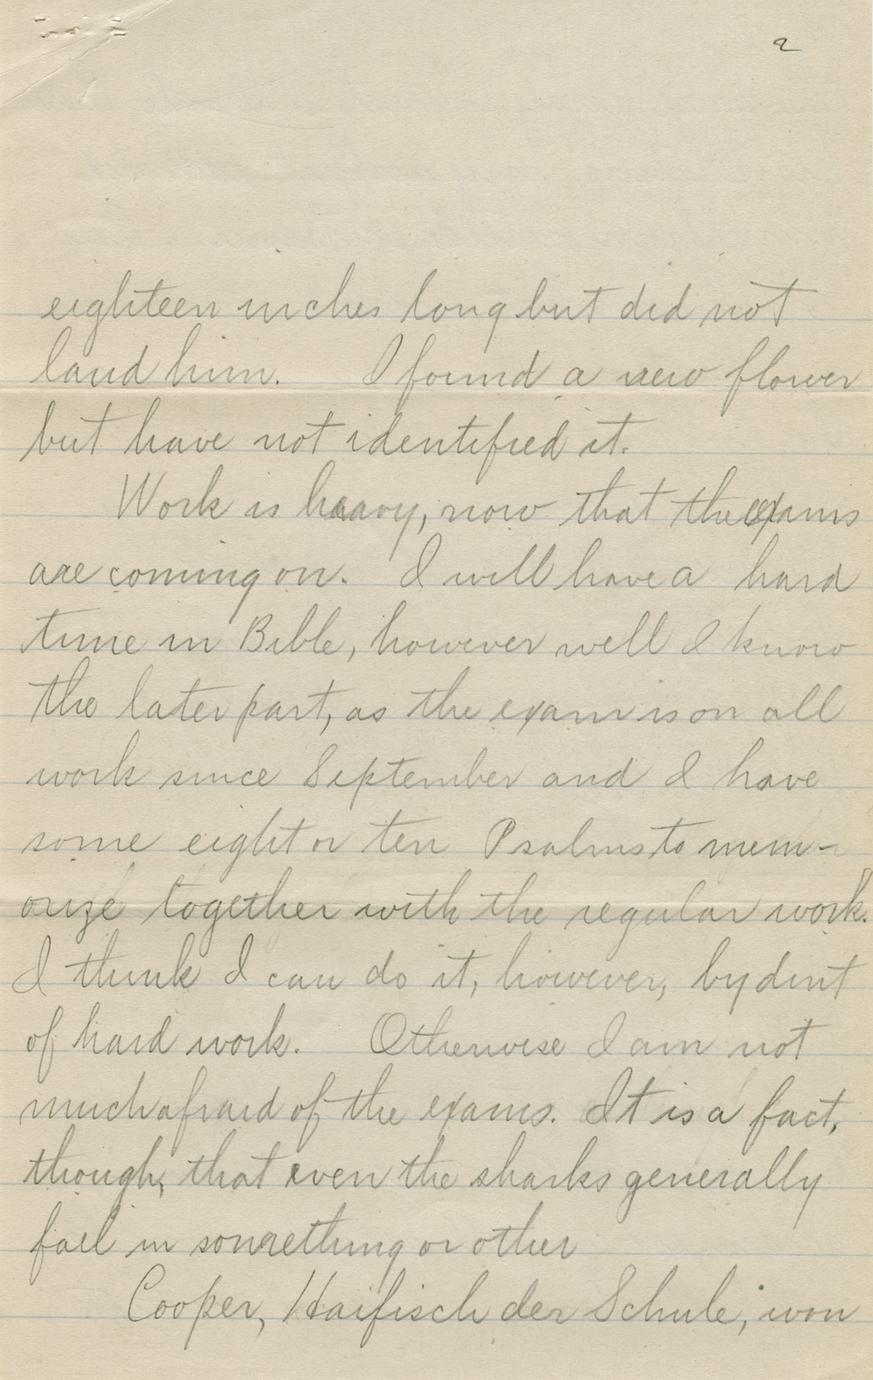 2
eighteen inches long but did not
land him. I found a new flower
but have not identified it.
Work is heavy, now that the exams
are coming on. I will have a hard
time in Bible, however well I know
the later part, as the exam is on all
work since September and I have
some eight or ten Psalms to mem-
orize together with the regular work.
I think I can do it, however, by dint
of hard work. Otherwise I am not
much afraid of the exams. It is a fact,
though, that even the sharks generally
fail in something or other
Cooper, Haifisch der Schule, won